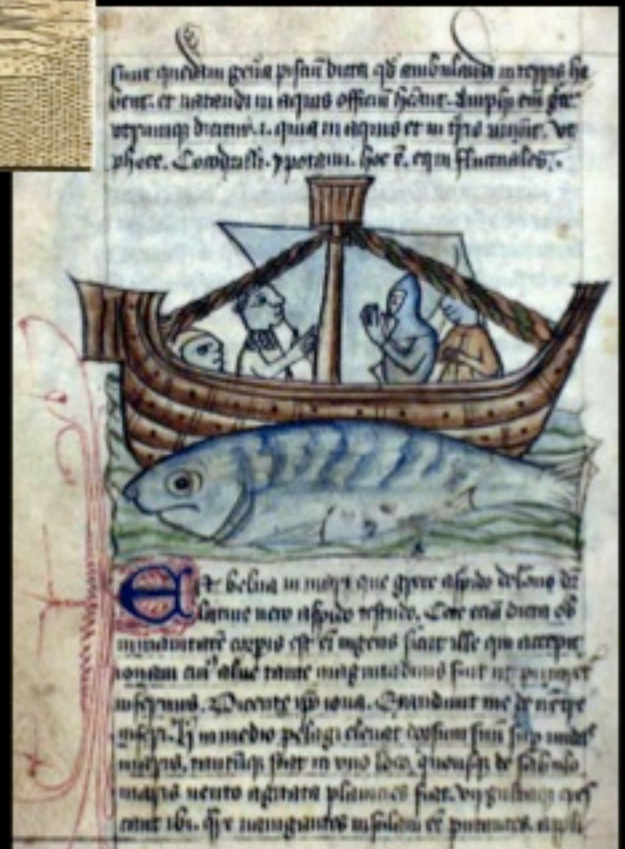 Sunt quedam gen̄a pisciū dicta qđ ambulandi in terris ha
bent. et natandi in aquis officiū h̄eant. Amphi em̄ grc̄
utrumq dicitur .i. quia in aquis et in t̄ris uiuūt. ut
phoce. Cocodrilli. ypotami. hoc ē. equi fluctuales.
Est belua in mari que grece aspido delone dr̄
latine uero aspido testudo. Cete eciā dicta ob
inmanitatē corporis est eī ingens sicut ille qui accepit
ionam cui⁹ aluus tante magnitudinis fuit ut putaret
infernus. Dicente ip̄o iona. Exaudiuit me de uētre
inferi. H in medio pelagi eleuat dorsum suū sup undas
maris, tantūq stat in uno loco, quousq de sabulo
maris uento agitata planicies fiat. uirgultaq cres
cant ibi. qr̄e nauigantes insulam eē putantes. appli